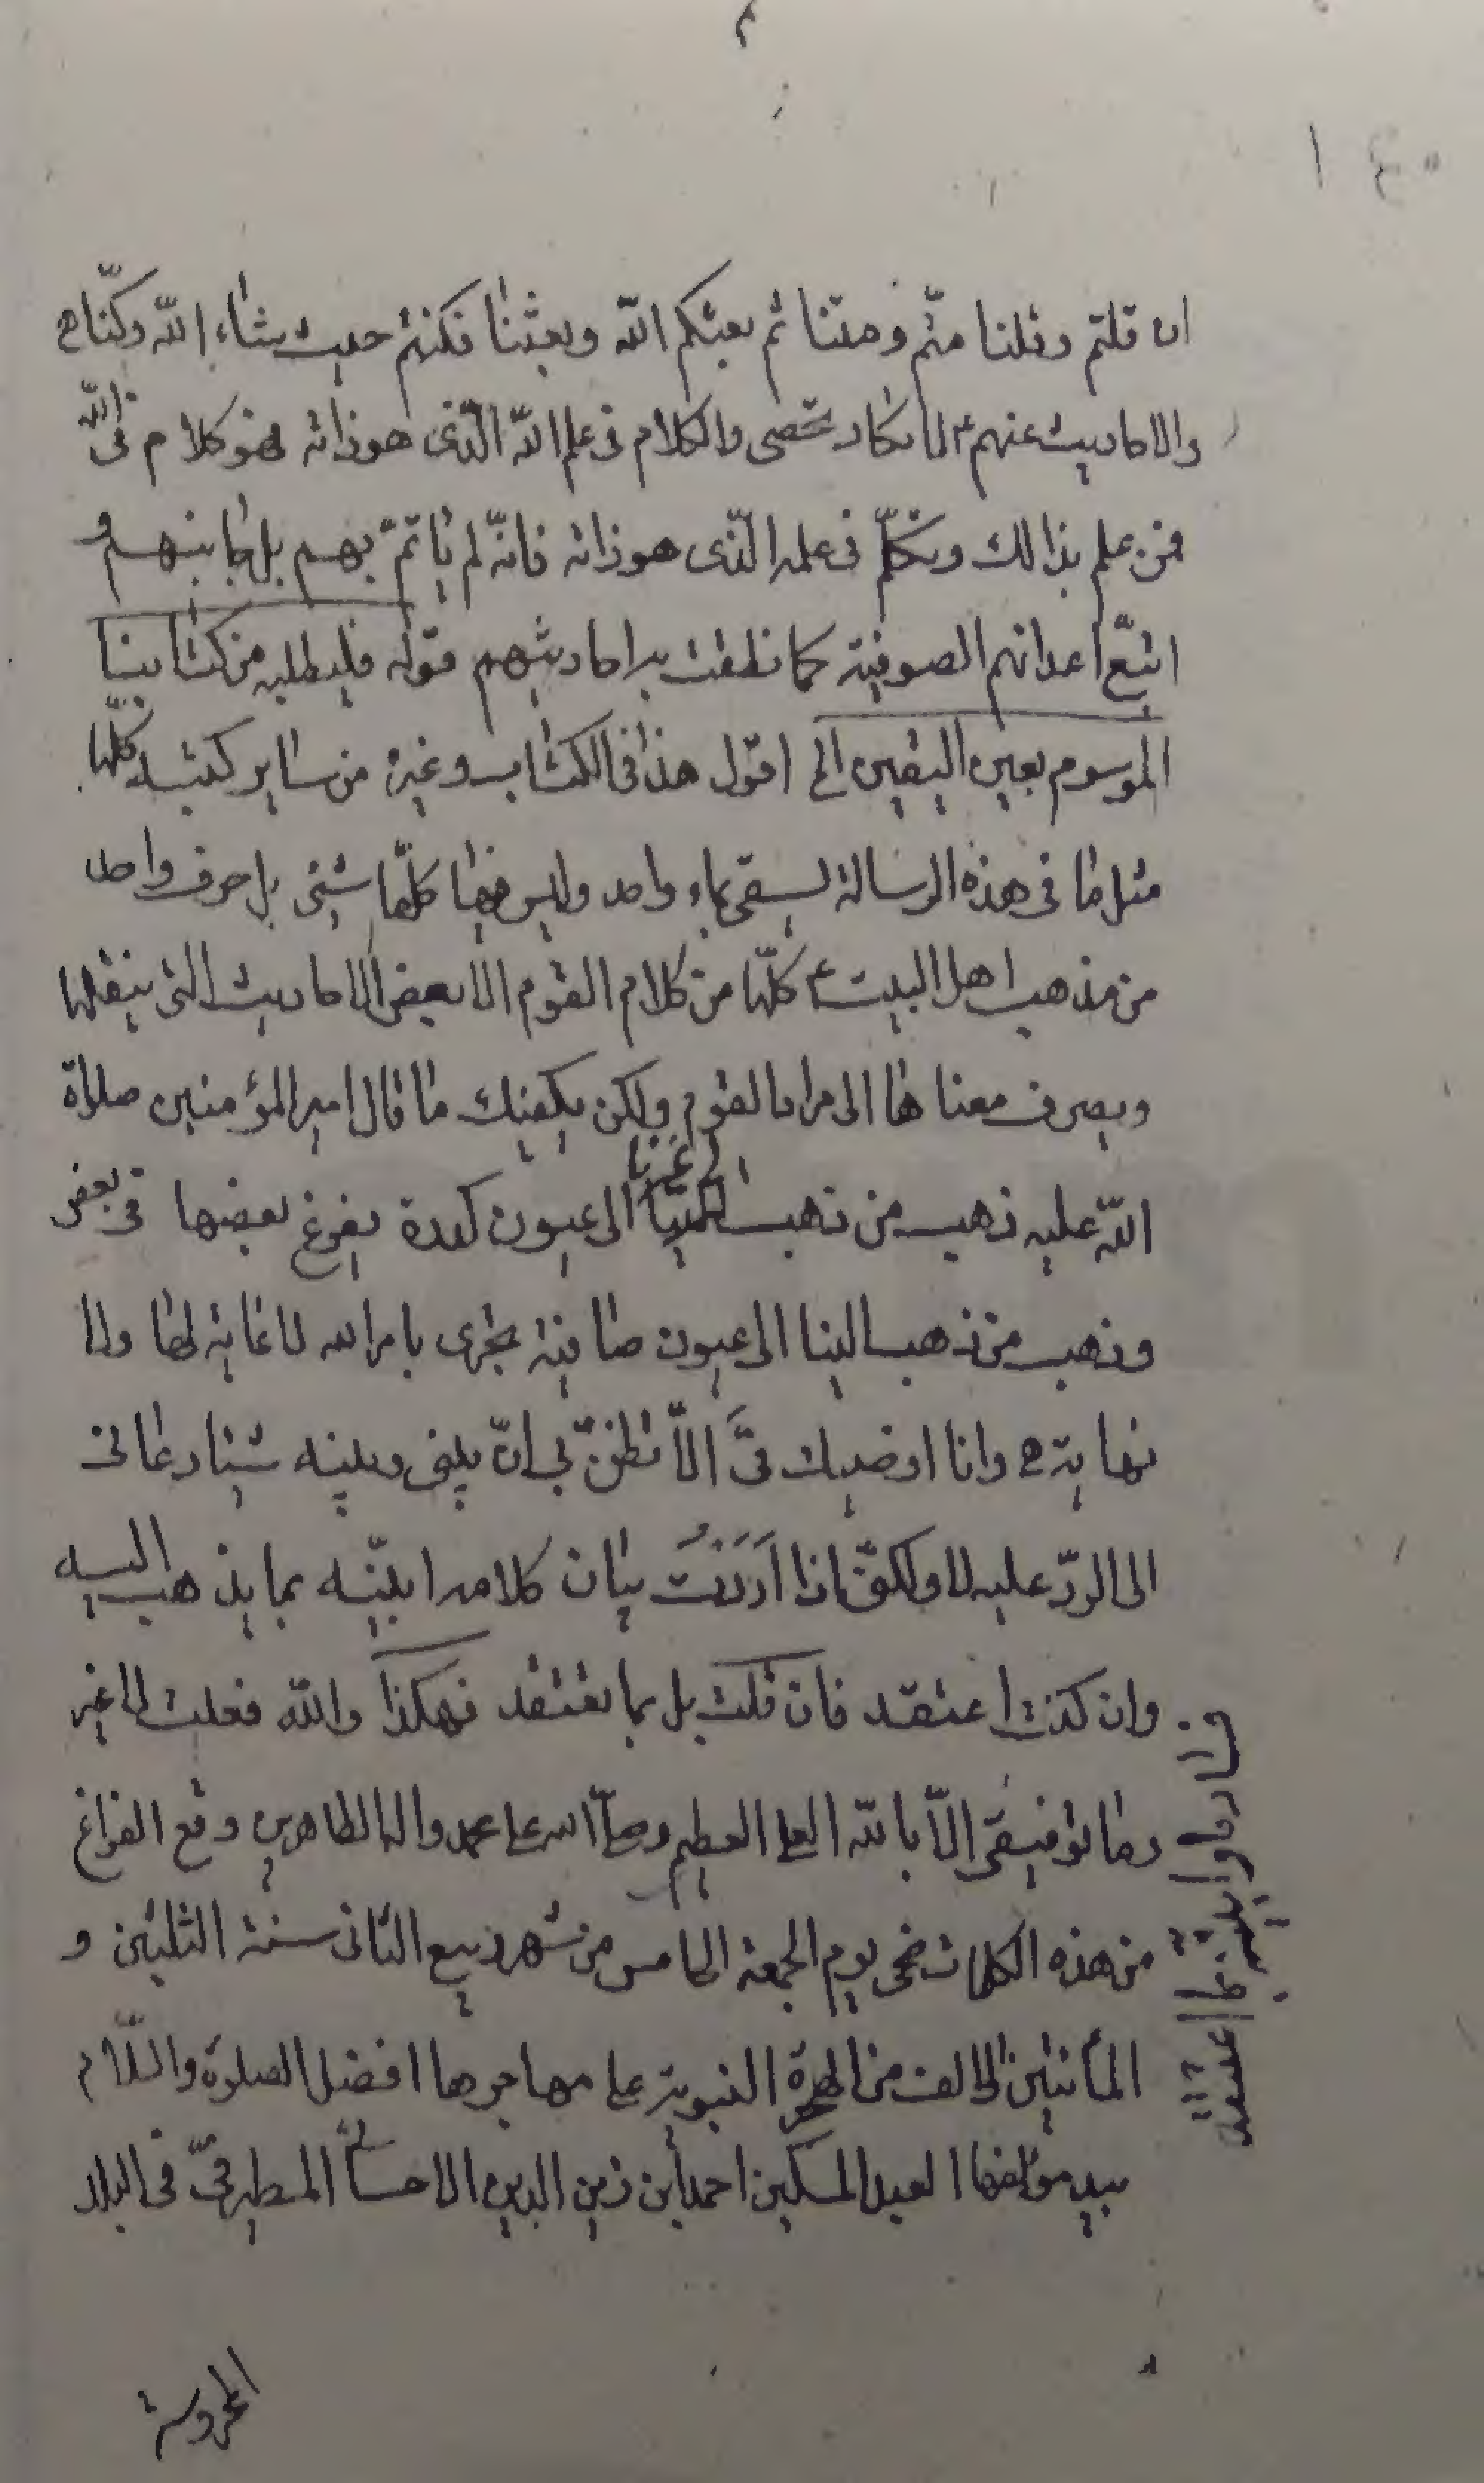 ان قلتم وقلنا متّم ومتنا ثم بعثكم الله وبعثنا فكنتم حيث يشاء الله وكنّا ح
والاحاديث عنهم ع لا تكاد تحصى والكلام فى علم الله الّذى هو ذاته فهو كلام فى الله
فمن علم بذالك وتكلّم فى علمه الّذى هو ذاته فانّه لم يأتمّ بهم بل جانبهم و
اتبّع اعدائهم الصوفية كما نطقت به احاديثهم قوله فليطلبه من كتابنا
الموسوم بعين اليقين الخ اقول هذا الكتاب وغيره من ساير كتبه كلّها
مثل ما فى هذه الرسالة يسقى بماء واحد وليس فيها كلّها شيئ بل حرف واحد
من مذهب اهل البيت ع كلّها من كلام القوم الا بعض الاحاديث التى ينقلها
ويصرف معناها الى مراد القوم ولكن يكفيك ما قال امير المؤمنين صلاة
الله عليه ذهب من ذهب الى غيرنا الى عيون كدرة يفرغ بعضها فى بعض
وذهب من ذهب الينا الى عيون صافية تجرى بامر الله لا غاية لها ولا
نهاية ه وانا اوصيك الاّ تظنّ بى انّ بينى وبينه شيئا دعانى
الى الردّ عليه لا ولكنّى اذا اَرَدْتُ بيان كلامه ابيّنه بما يذهب اليه
وان كنت اعتقد فان قلت بل بما تعتقد فهكذا والله فعلت لا غير
وما توفيقى الاّ بالله العلى العظيم وصلّى الله على محمد واله الطاهرين وقع الفراغ
من هذه الكلمات ضحى يوم الجمعة الخامس من شهر ربيع الثانى سنة الثلثين و
المأتين والالف من الهجرة النبوية على مهاجرها افضل الصلوة والسّلام
بيد مؤلفها العبد المسكين احمد بن زين الدين الاحسائى المطيرفىّ فى البلاد
المحروسة